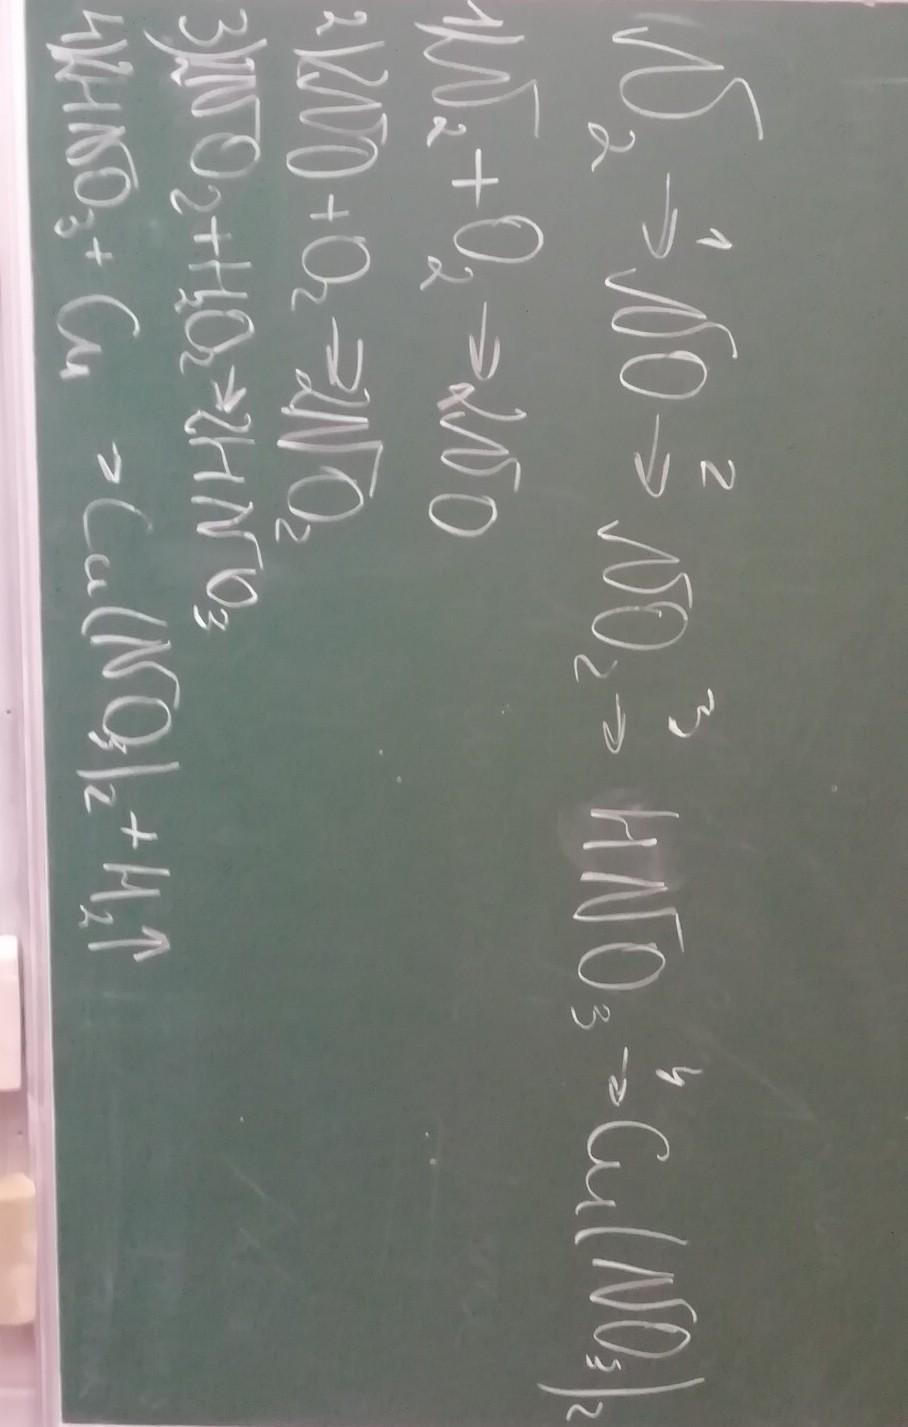 N₂ →¹ NO →² NO₂ →³ HNO₃ →⁴ Cu(NO₃)₂
1) N₂ + O₂ → 2NO
2) 2NO + O₂ → 2NO₂
3) 2NO₂ + H₂O₂ → 2HNO₃
4) 2HNO₃ + Cu → Cu(NO₃)₂ + H₂↑